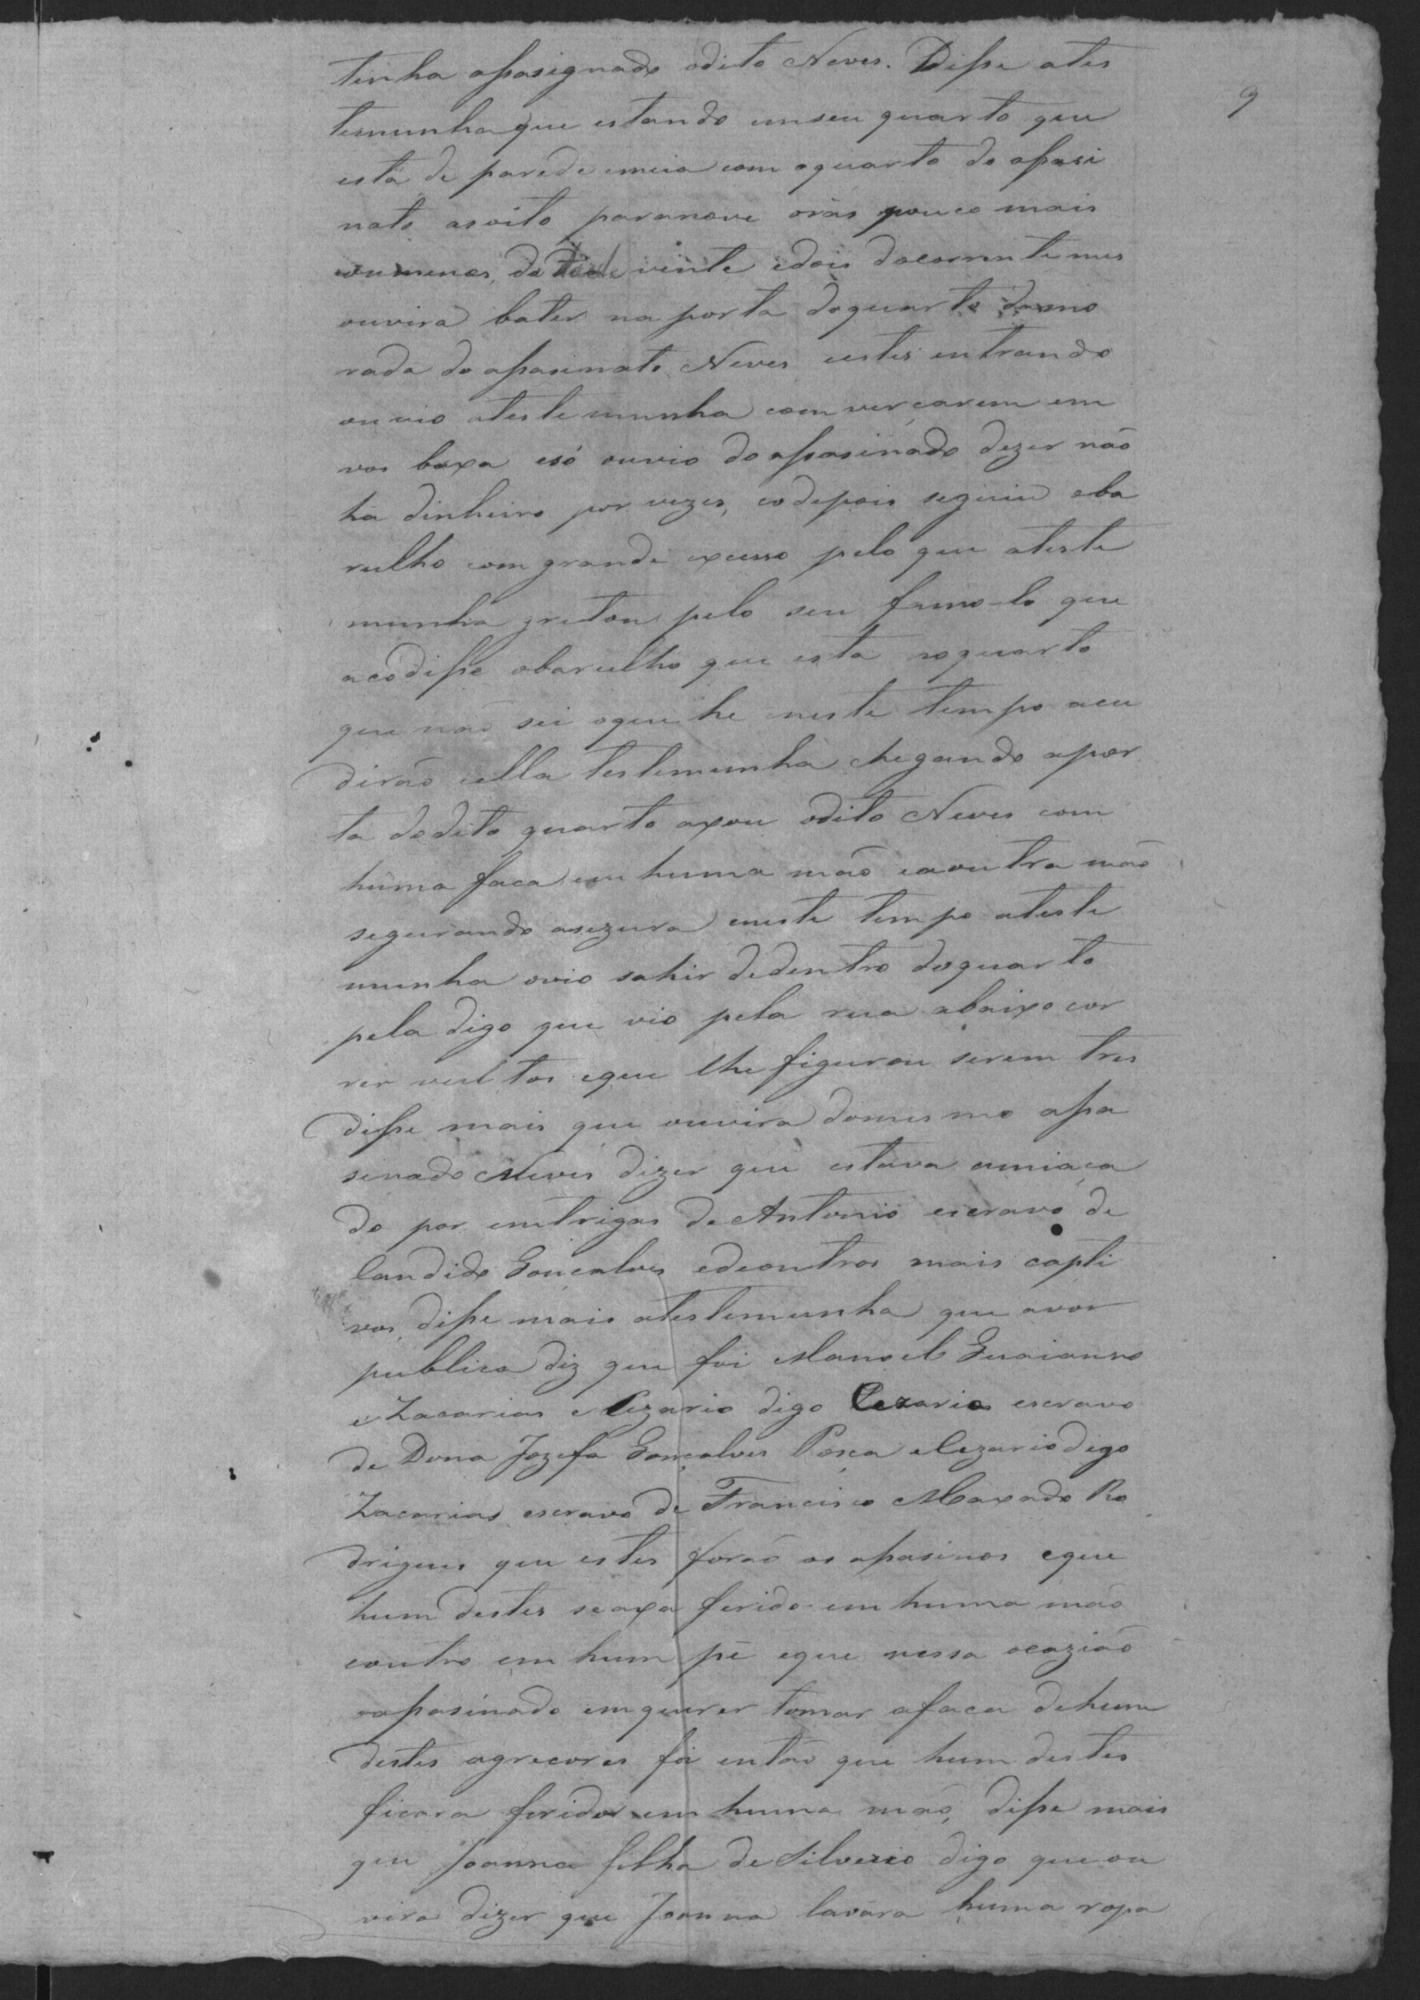 9
tinha assasignado odito Neves. Disse ates
temunha que estando em seu quarto que
está de parede emeia com oquarto do assasi
nato as oito para nove oras pouco mais
ou menos, do dia vinte e dois do corrente mes
ouvira bater na porta do quarto da mo
rada do assasinato Neves e estes entrando
ouvio atestemunha com verçarem em
vos baxa e só ouvio do assasinado dizer não
ha dinheiro por vezes, e o depois seguiu oba
rulho com grande excesso pelo que ateste
munha gritou pelo seu famolo que
acodisse obarulho que esta no quarto
que não sei oque he neste tempo acu
dirão e ella testemunha chegando apor
ta do dito quarto axou odito Neves com
huma faca em huma mão e aoutra mão
segurando a sezura e neste tempo ateste
munha ovio sahir de dentro do quarto
pela digo que vio pela rua abaixo cor
rer vultos e que lhe figurou serem tres
disse mais que ouvira do mesmo assa
sinado Neves dizer que estava amiaça
do por emtrigas de Antonio escravo de
Candido Gonçalves e de outros mais capti
vos, disse mais atestemunha que avos
publica diz que foi Manoel Guaianno
e Zacarias e Cezario digo Cezario escravo
de Dona Jozefa Gonçalves Posca e Cezario digo
Zacarias escravo de Francisco Maxado Ro
drigues que estes forão os assasinos e que
hum destes se axa ferido em huma mão
e outro em hum pé e que nessa ocazião
oassasinado em querer tomar afaca de hum
destes agreçores foi então que hum destes
ficara ferido em huma mão, disse mais
que Joanna filha de Silverio digo que ou
vira dizer que Joanna lavara huma ropa